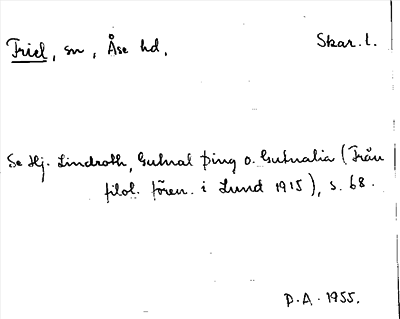 Friel, sn, Åse hd. Skar. l.
Se Hj. Lindroth, Gutnal þing o. Gutnalia (Från
filol. fören. i Lund 1915), s. 68.
D.A. 1955.